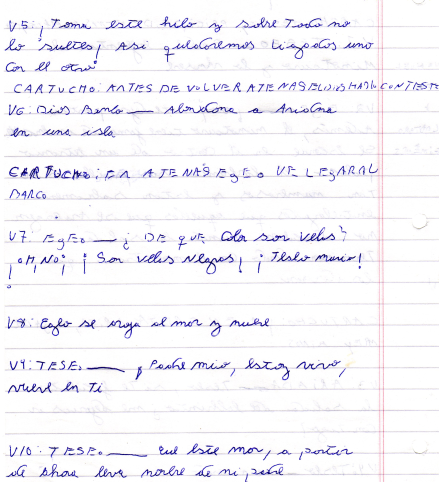 V5: ¡ Toma este hilo y sobre Todo no
lo sueltes, Asi quedaremos Ligados uno
Con el otro
CARTUCHO: ANTES DE VOLVER ATENAS EL DIOS
V6: Dios Banco — Abandona a Ariadna
en una isla
CARTUCHO: EN ATENAS EgEo VE LLEgAR AL
BARCO
V7: EgEo — ¿ DE qUE Color son velas?
¡ OH, NO; ¡ Son velas Negras, ¡ Teseo murio!
V8: Egeo se aroja al mar y muere
V9: TESEo — ¡ Padre mio, estoy vivo,
vuelve en Ti
V10: TESEo. — Que este mar, a partir
de ahora leve nombre de mi padre